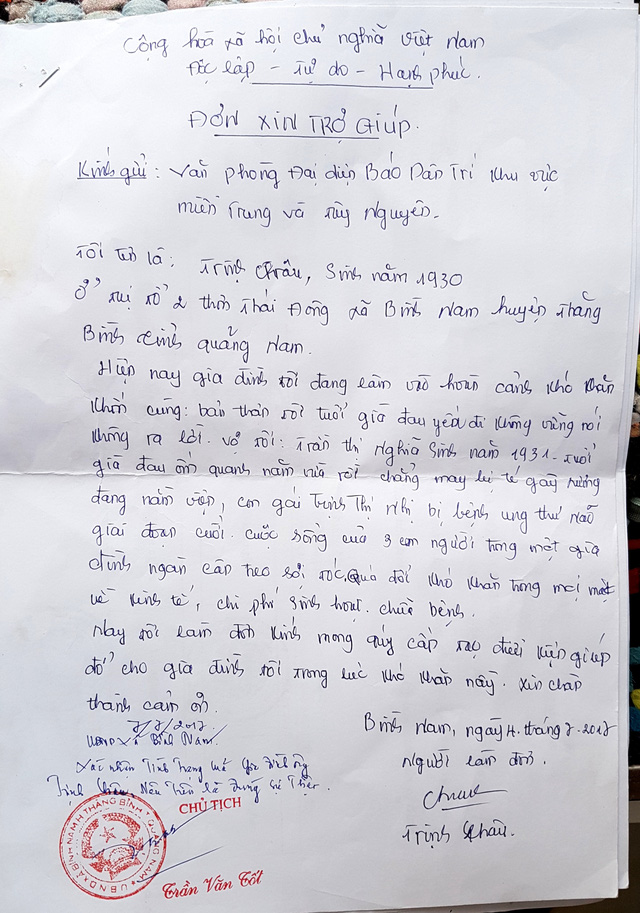 Cộng hoà xã hội chủ nghĩa việt Nam
Độc lập - Tự do - Hạnh phúc.
ĐƠN XIN TRỢ GIÚP.
Kính gửi: Văn phòng Đại diện Báo Dân Trí khu vực
miền Trung và Tây Nguyên.
Tôi tên là: Trịnh Châu, Sinh năm 1930
Ở tại tổ 2 thôn Thái Đông xã Bình Nam huyện Thăng
Bình tỉnh quảng Nam.
Hiện nay gia đình tôi đang lâm vào hoàn cảnh khó khăn
khốn cùng: bản thân tôi tuổi già đau yếu đi không vững nói
không ra lời. vợ tôi: Trần thị Nghĩa Sinh năm 1931. tuổi
già đau ốm quanh năm vừa rồi chẳng may bị té gãy xương
đang nằm viện, con gái Trịnh Thị Nhị bị bệnh ung thư não
giai đoạn cuối. cuộc sống của 3 con người trong một gia
đình ngàn cân treo sợi tóc, quá đổi khó khăn trong mọi mặt
về kinh tế, chi phí sinh hoạt. chữa bệnh.
Nay tôi làm đơn kính mong quý cấp tạo điều kiện giúp
đỡ cho gia đình tôi trong lúc khó khăn này. xin chân
thành cảm ơn.
Bình Nam, ngày 4. tháng 7. 2017
người làm đơn.
Trịnh Châu.
7/7/2017
UBND xã Bình Nam.
Xác nhận Tình Trạng mà gia đình ông
Trịnh Châu Nêu Trên là đúng sự Thật.
CHỦ TỊCH
U.B.N.D XÃ BÌNH NAM H.THĂNG BÌNH T.QUẢNG NAM
Trần Văn Tốt